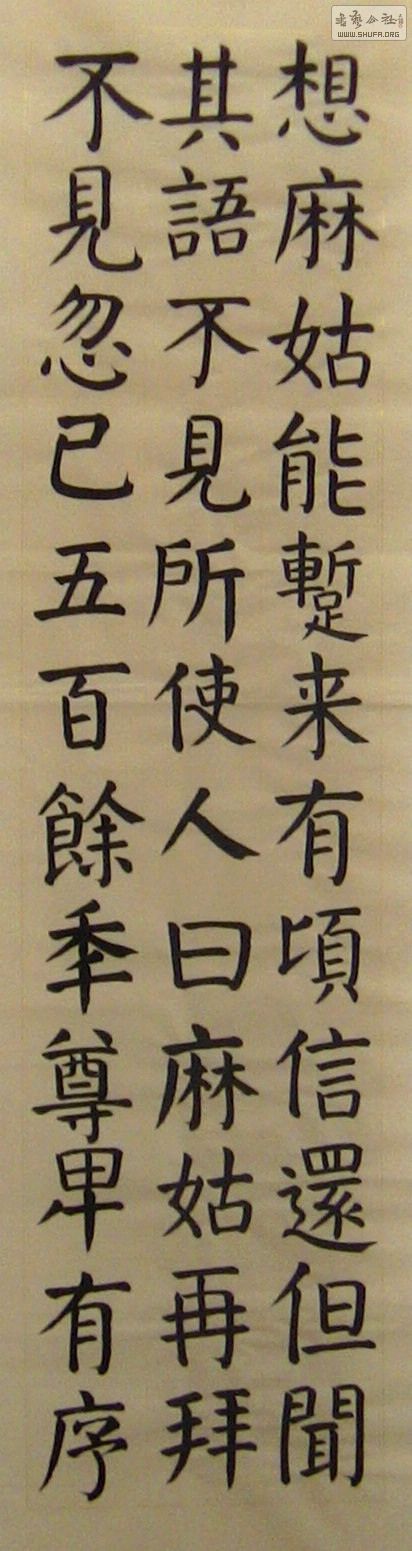 书艺公社
WWW.SHUFA.ORG
想麻姑能蹔来有頃信還但聞
其語不見所使人曰麻姑再拜
不見忽已五百餘秊尊卑有序